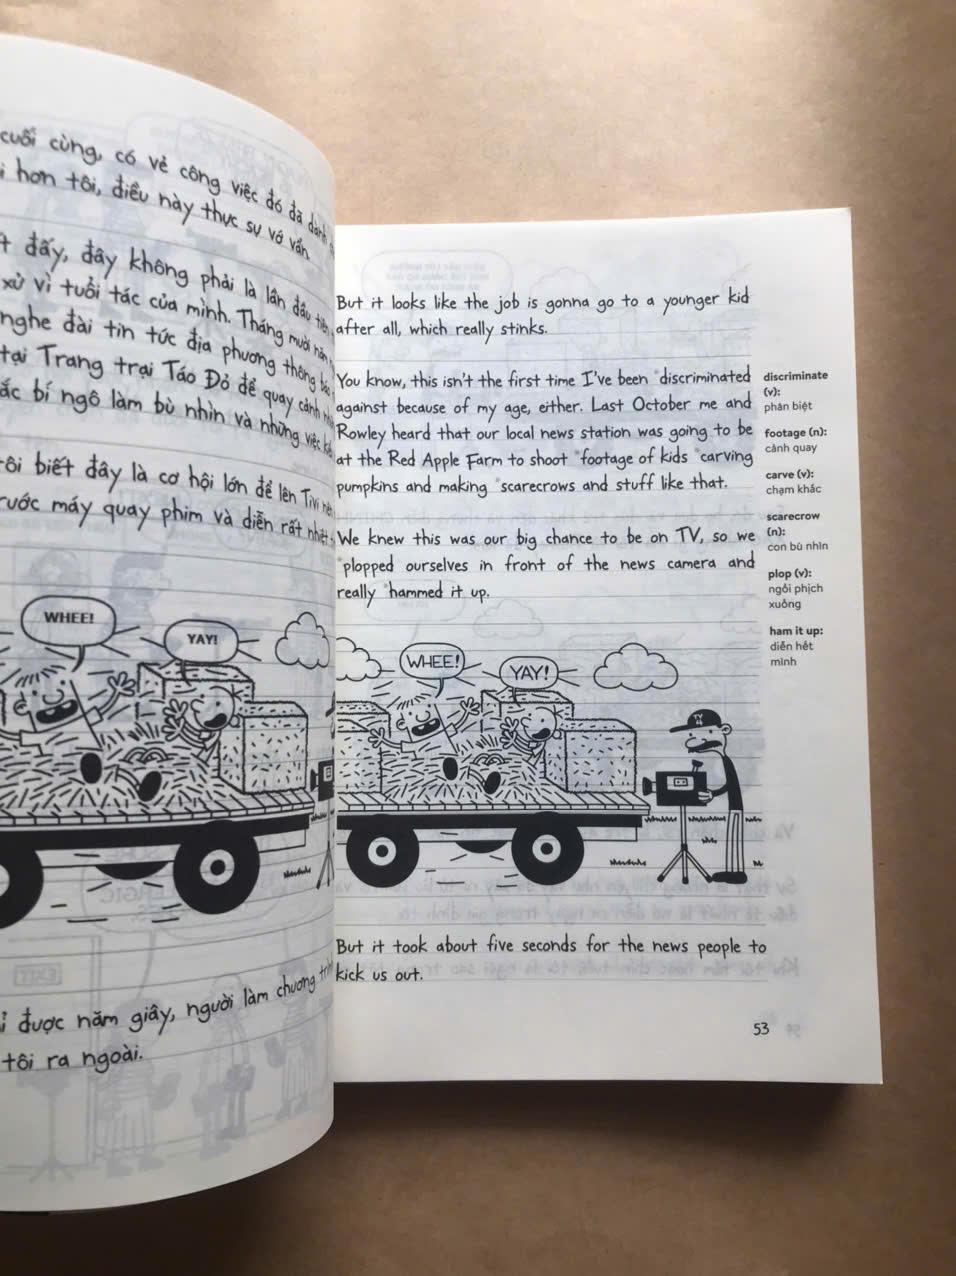 cuối cùng, có vẻ công việc đó đã dành
hơn tôi, điều này thực sự vớ vẩn.
đấy, đây không phải là lần đầu tiên
xử vì tuổi tác của mình. Tháng mười năm
nghe đài tin tức địa phương thông báo
tại Trang trại Táo Đỏ để quay cảnh
bí ngô làm bù nhìn và những việc
tôi biết đây là cơ hội lớn để lên Tivi nên
trước máy quay phim và diễn rất nhiệt
WHEE!
YAY!
được năm giây, người làm chương
tôi ra ngoài.
But it looks like the job is gonna go to a younger kid
after all, which really stinks.
You know, this isn't the first time I've been *discriminated
against because of my age, either. Last October me and
Rowley heard that our local news station was going to be
at the Red Apple Farm to shoot *footage of kids *carving
pumpkins and making *scarecrows and stuff like that.
We knew this was our big chance to be on TV, so we
*plopped ourselves in front of the news camera and
really *hammed it up.
WHEE!
YAY!
TV
But it took about five seconds for the news people to
kick us out.
discriminate
(v):
phân biệt
footage (n):
cảnh quay
carve (v):
chạm khắc
scarecrow
(n):
con bù nhìn
plop (v):
ngồi phịch
xuống
ham it up:
diễn hết
mình
53